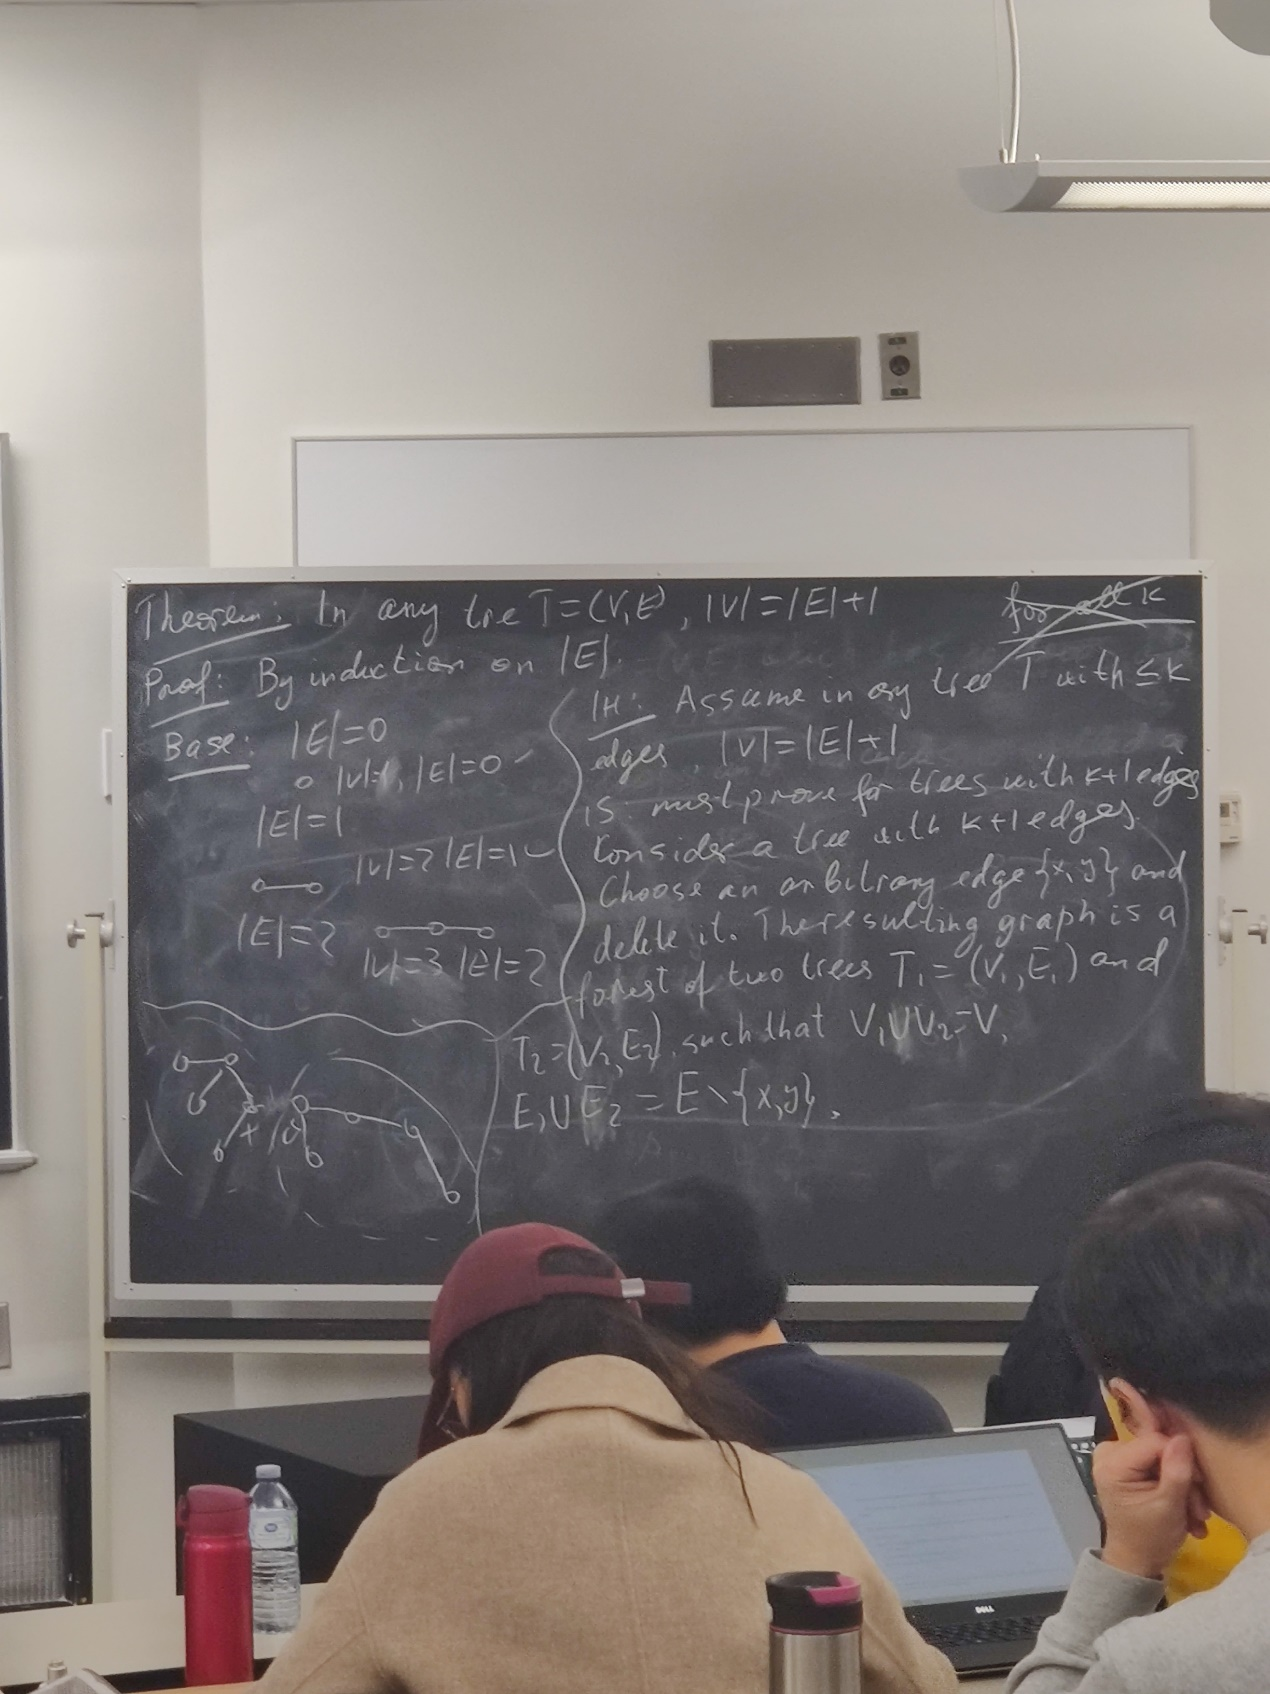 Theorem: In any tre T=(V,E), |V|=|E|+1
for all k
Proof: By induction on |E|.
Base: |E|=0
|V|=1, |E|=0
|E|=1
|V|=2 |E|=1
|E|=2
|V|=3 |E|=2
IH: Assume in any tree T with ≤k
edges, |V|=|E|+1
IS: must prove for trees with k+1 edges
Consider a tree with k+1 edges.
Choose an arbitrary edge {x,y} and
delete it. The resulting graph is a
forest of two trees T₁=(V₁,E₁) and
T₂=(V₂,E₂), such that V₁∪V₂=V,
E₁∪E₂=E\{x,y}.
DELL